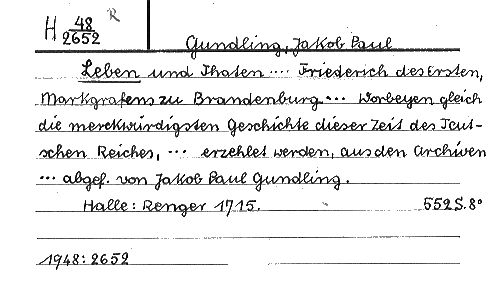 H 48/2652 R
Gundling, Jakob Paul
Leben und Thaten .... Friederich des Ersten,
Markgrafens zu Brandenburg ... Worbeyen gleich
die merckwürdigsten Geschichte dieser Zeit des Teut-
schen Reiches, ... erzehlet werden, aus den Archiven
... abgef. von Jakob Paul Gundling.
Halle: Renger 1715. 552 S. 8°
1948: 2652